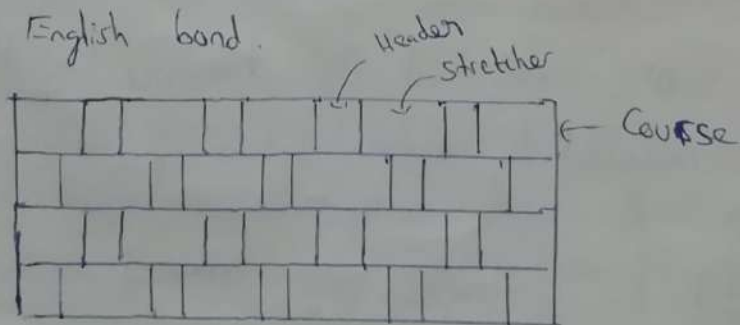 English bond.
Header
stretcher
Course